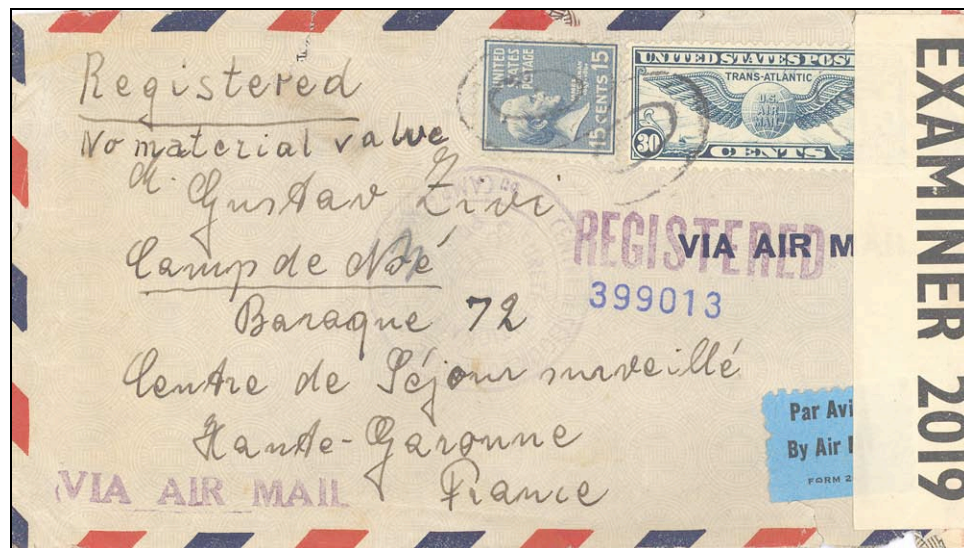 Registered
No material value
M. Gustav Zivi
Camp de Noé
Baraque 72
Centre de Séjour surveillé
Haute-Garonne
France
UNITED STATES POSTAGE
15 CENTS 15
UNITED STATES POST
TRANS-ATLANTIC
U.S. AIR MAIL
30
CENTS
REGISTERED
VIA AIR M
399013
Par Avi
By Air
FORM 2
VIA AIR MAIL
EXAMINER 2019